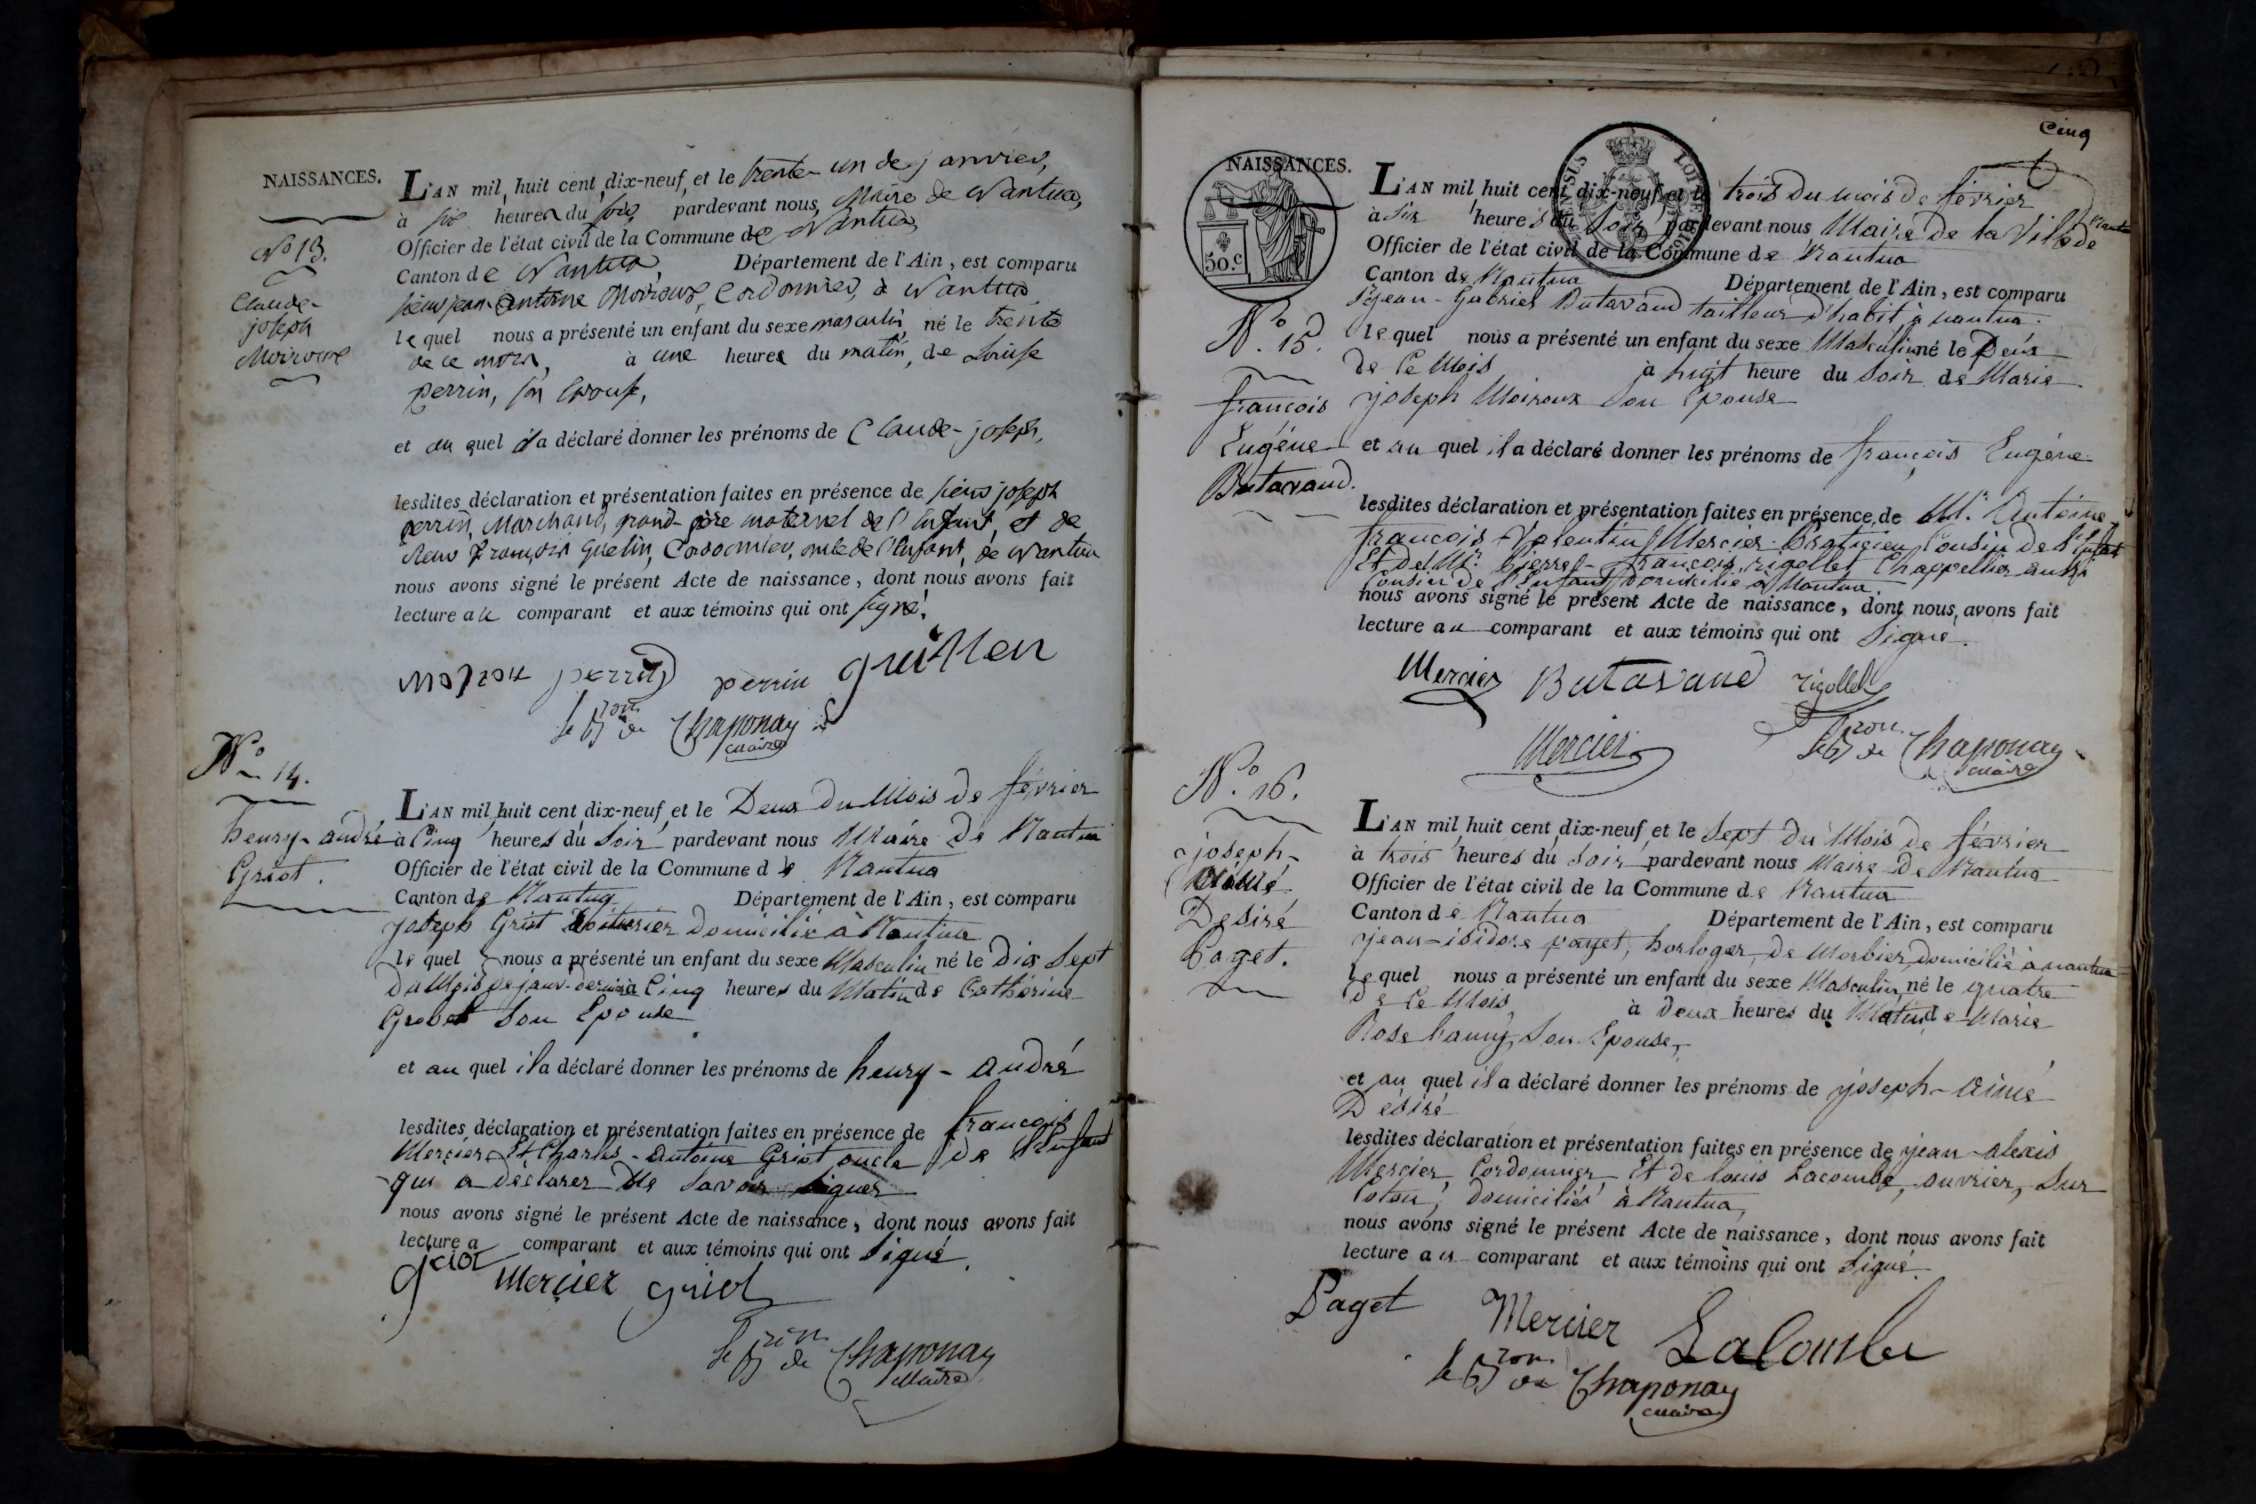 NAISSANCES.
L'AN mil huit cent dix-neuf, et le trente-un de janvier,
à six heures du soir, pardevant nous, Maire de Nantua,
Officier de l'état civil de la Commune de Nantua
Canton de Nantua, Département de l'Ain, est comparu
sieur jean antoine Moiroux, Cordonnier, à Nantua
lequel nous a présenté un enfant du sexe masculin, né le trente
de ce mois, à une heures du matin, de Louise
perrin, son Epouse,
et au quel il a déclaré donner les prénoms de Claude-joseph,
lesdites déclaration et présentation faites en présence de sieurs joseph
perrin, Marchand, grand-père maternel de l'Enfant, et de
sieur françois Guelin, Cordonnier, oncle de l'Enfant, de Nantua
nous avons signé le présent Acte de naissance, dont nous avons fait
lecture au comparant et aux témoins qui ont signé.
perrin perrin
le Bron de Chaponay
maire
No 13.
Claude-
joseph
Moiroux
No 14.
henry-andré
Griot.
L'AN mil huit cent dix-neuf, et le Deux Du Mois de février
à Cinq heures du Soir pardevant nous Maire De Nantua
Officier de l'état civil de la Commune de Nantua
Canton de Nantua Département de l'Ain, est comparu
joseph Griot Domicilié à Nantua
le quel nous a présenté un enfant du sexe Masculin né le Dix Sept
Du Mois de janv. dernier à Cinq heures du Matin de Catherine
Son Epouse
et au quel il a déclaré donner les prénoms de henry-andré
lesdites déclaration et présentation faites en présence de francois
Mercier Et Charles-antoine Griot oncle de l'Enfant
qui a déclarer Ne Savoir Signer
nous avons signé le présent Acte de naissance, dont nous avons fait
lecture a comparant et aux témoins qui ont Signé.
griot Mercier griot
le Bron de Chaponay
Maire
cinq
NAISSANCES.
50.c
L'AN mil huit cent dix-neuf, et le trois Du mois de février
à Six heures du Soir pardevant nous Maire De la Ville de Nantua
Officier de l'état civil de la Commune de Nantua
Canton de Nantua Département de l'Ain, est comparu
Sr jean-Gabriel Butavand tailleur d'habit à nantua.
le quel nous a présenté un enfant du sexe Masculin né le Deux
de Ce Mois à huit heure du Soir de Marie
joseph Moiroux Son Epouse
et au quel il a déclaré donner les prénoms de françois Eugéne
lesdites déclaration et présentation faites en présence de Mr. Antoine
francois Valentin Mercier Praticien Cousin de l'Enfant
Et de Mr. Pierre-françois rigollet Chappellier aussi
Cousin de l'Enfant domicilié à Nantua.
nous avons signé le présent Acte de naissance, dont nous avons fait
lecture au comparant et aux témoins qui ont Signé.
Mercier Butavand rigollet
Mercier
le Bron de Chaponay
maire
No. 15.
françois
Eugéne
Butavand.
No. 16.
joseph-
aimé
Desiré
Paget.
L'AN mil huit cent dix-neuf, et le Sept du Mois de février
à trois heures du Soir pardevant nous Maire De Nantua
Officier de l'état civil de la Commune de Nantua
Canton de Nantua Département de l'Ain, est comparu
jean-isidore paget, horloger, de Morbier, domicilié à nantua
lequel nous a présenté un enfant du sexe Masculin, né le quatre
De Ce Mois, à Deux heures du Matin de Marie
Rose Son Epouse,
et au quel il a déclaré donner les prénoms de joseph-aimé
Désiré
lesdites déclaration et présentation faites en présence de jean-alexis
Mercier, Cordonnier, Et de louis Lacombe, ouvrier, Sur
Coton, domiciliés à Nantua,
nous avons signé le présent Acte de naissance, dont nous avons fait
lecture au comparant et aux témoins qui ont Signé.
Paget Mercier Lacombe
le Bron de Chaponay
maire